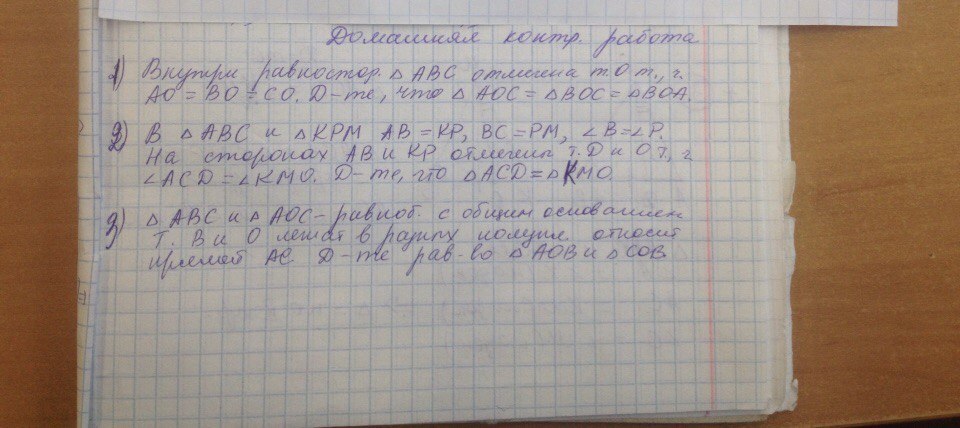 Домашняя контр. работа
1) Внутри равностор. △ ABC отмечена т. О т., ч.
AO = BO = CO. Д-те, что △ AOC = △ BOC = △ BOA.
2) В △ ABC и △ KPM AB = KP, BC = PM, ∠B = ∠P.
На сторонах AB и KP отмечены т. D и O т., ч
∠ACD = ∠KMO. Д-те, что △ ACD = △ KMO.
3) △ ABC и △ AOC - равноб. с общим основанием
Т. B и O лежат в разных полупл. относит
прямой AC. Д-те рав-во △ AOB и △ COB